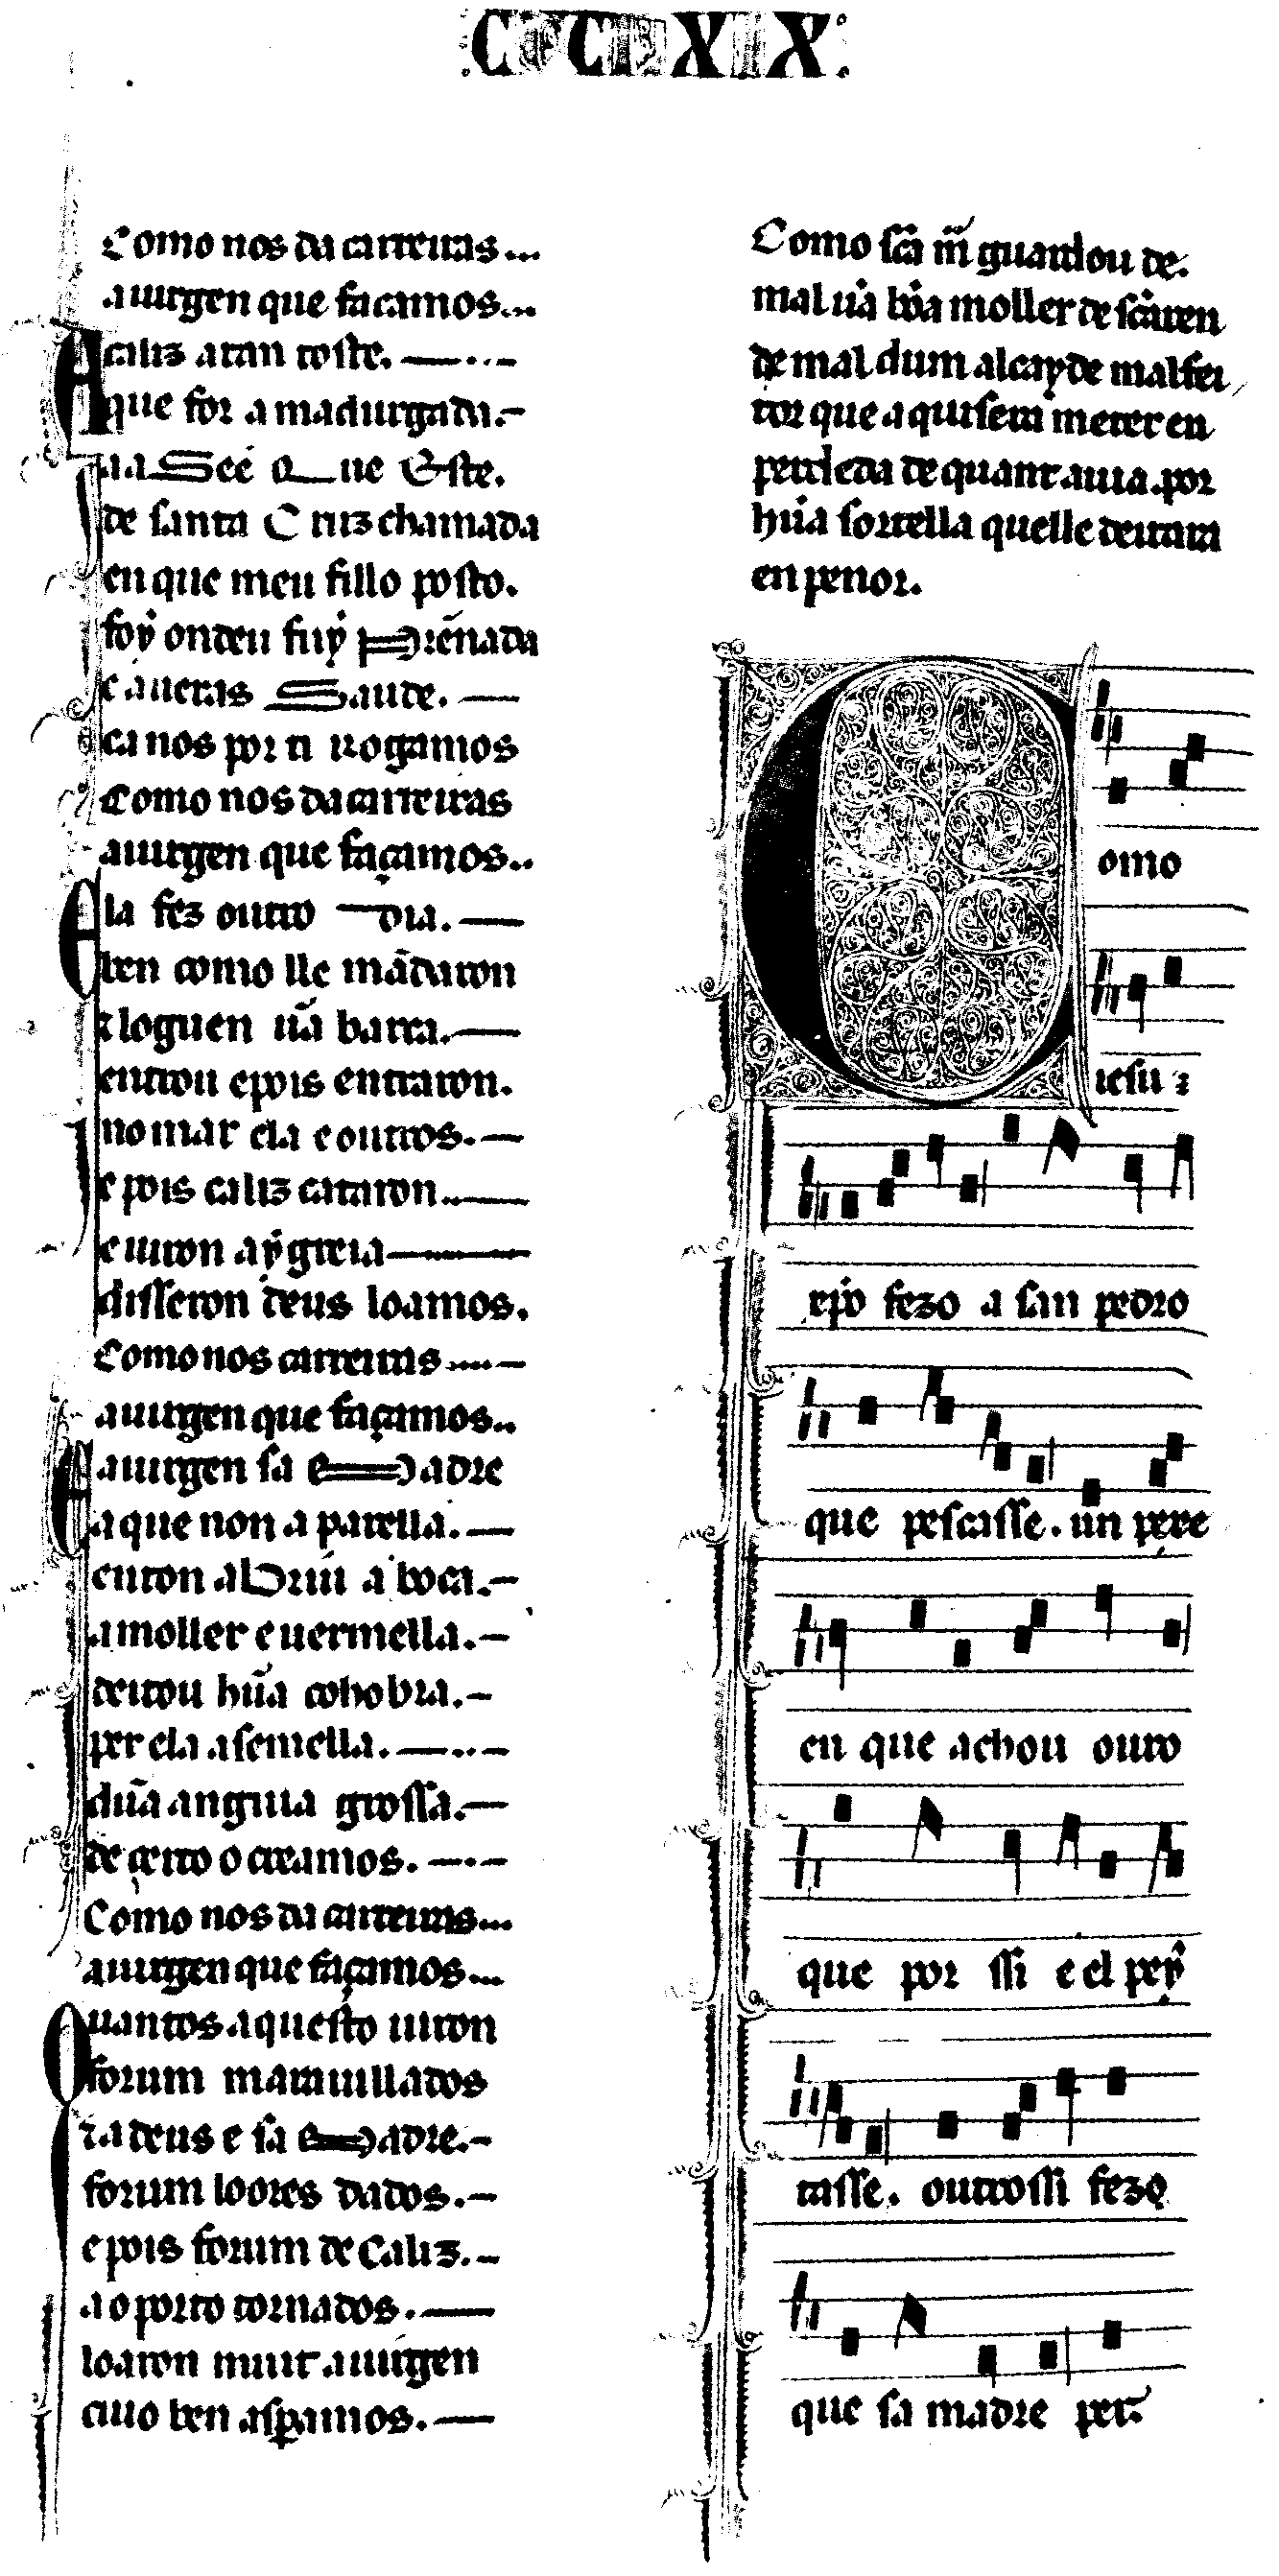 CCCLXIX
Como nos da carreiras...
a uirgen que façamos...
A caliz a tan toste.
que for a madurgada.
a a See Que Este.
de santa Cruz chamada
en que meu fillo posto.
foy onden fuy Prẽnada
e aueras Saude.
ca nos por ti rogamos
Como nos da carreiras
a uirgen que façamos..
Ela fez outro dia.
ben como lle mãdaron
⁊ loguen ũa barca.
entrou e pois entraron.
no mar ela e outros.
e pois caliz cataron..
e uiron aýgreia
disseron deus loamos.
Como nos carreiras....
a uirgen que façamos..
E a uirgen sa Madre
a que non a parella.
enton abriu a boca.
a moller e uermella.
deitou hũa cohobra.
per ela a semella.
dũa anguia grossa.
de çerto o creamos.
Como nos da carreiras...
a uirgen que façamos...
Quantos aquesto uiron
forum marauillados
⁊ a deus e sa Madre.
forum loores dados.
e pois forum de Caliz.
a o porto tornados.
loaron muit a uirgen
cuio ben asꝑamos.
Como sc̃a m̃ guardou de.
mal ũa bõa moller de scãren
de mal dum alcayde malfei
tor que a quisera meter en
perdeda de quant auia. por
hũa sortella quelle deitara
en penor.
Como
iesu
cristo fezo a san pedro
que pescasse. un pexe
en que achou ouro
que por ssi e el pey
tasse. outrossi fezo
que sa madre per